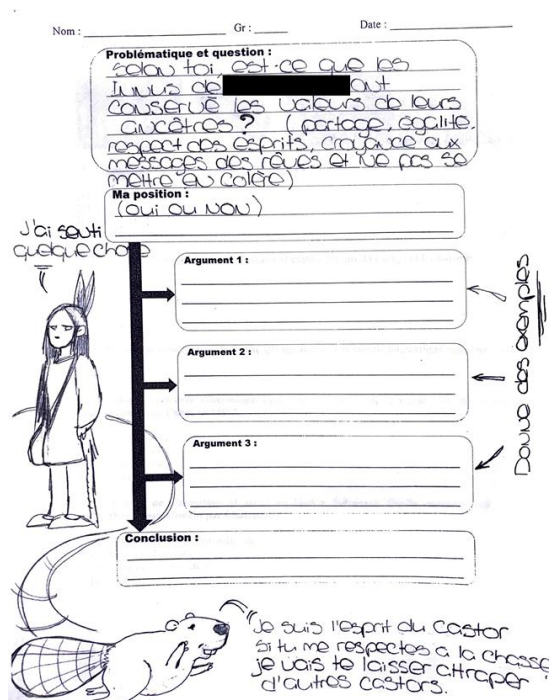 Nom : Gr : Date :
Problématique et question :
Selon toi, est-ce que les
Innus de ont
conservé les valeurs de leurs
ancêtres ? (partage, égalité,
respect des esprits, croyance aux
messages des rêves et ne pas se
mettre en colère)
Ma position :
(oui ou NON)
J'ai senti
quelque chose
Argument 1 :
Argument 2 :
Argument 3 :
Donne des exemples
Conclusion :
Je suis l'esprit du castor
si tu me respectes a la chasse
je vais te laisser attraper
d'autres castors.